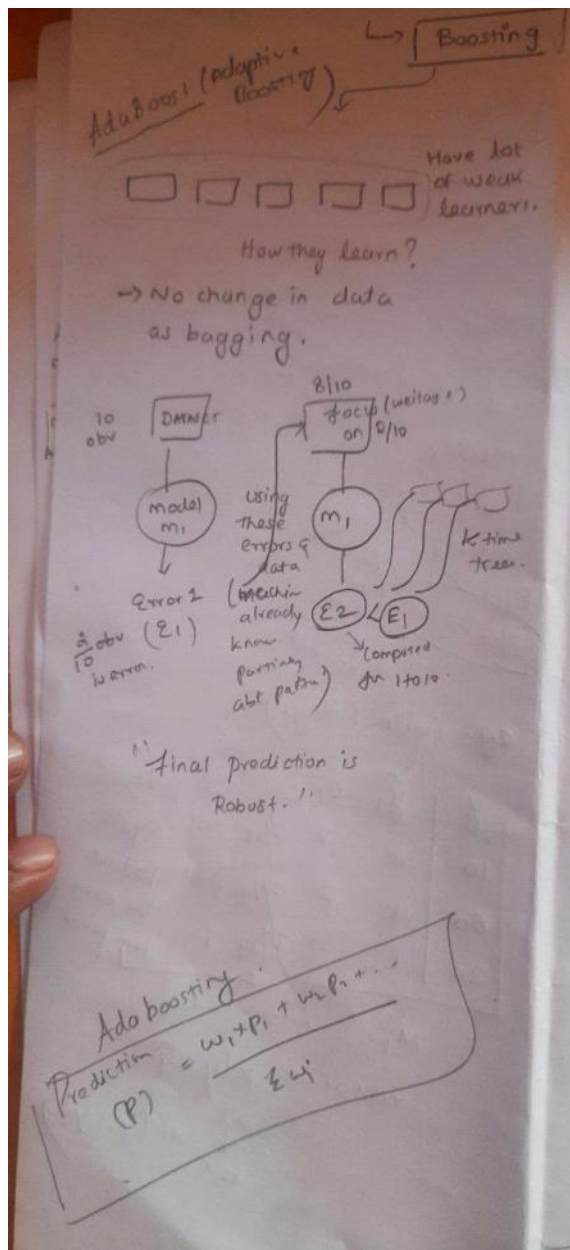 Boosting
AdaBoost (Adaptive
Boosting)
Have lot
of weak
learners.
How they learn?
→ No change in data
as bagging.
10
obv
DATASET
model
m1
Error 1
(E1)
2/10 obv
is error.
using
these
errors &
data
(machin
already
know
partialy
abt
8/10
focus
on 2/10
m1
E2 < E1
Computed
for 1 to 10.
k time
trees.
"Final prediction is
Robust."
Adaboosting
Prediction
(P) = w1*P1 + w2 P2 + ...
Σ wi